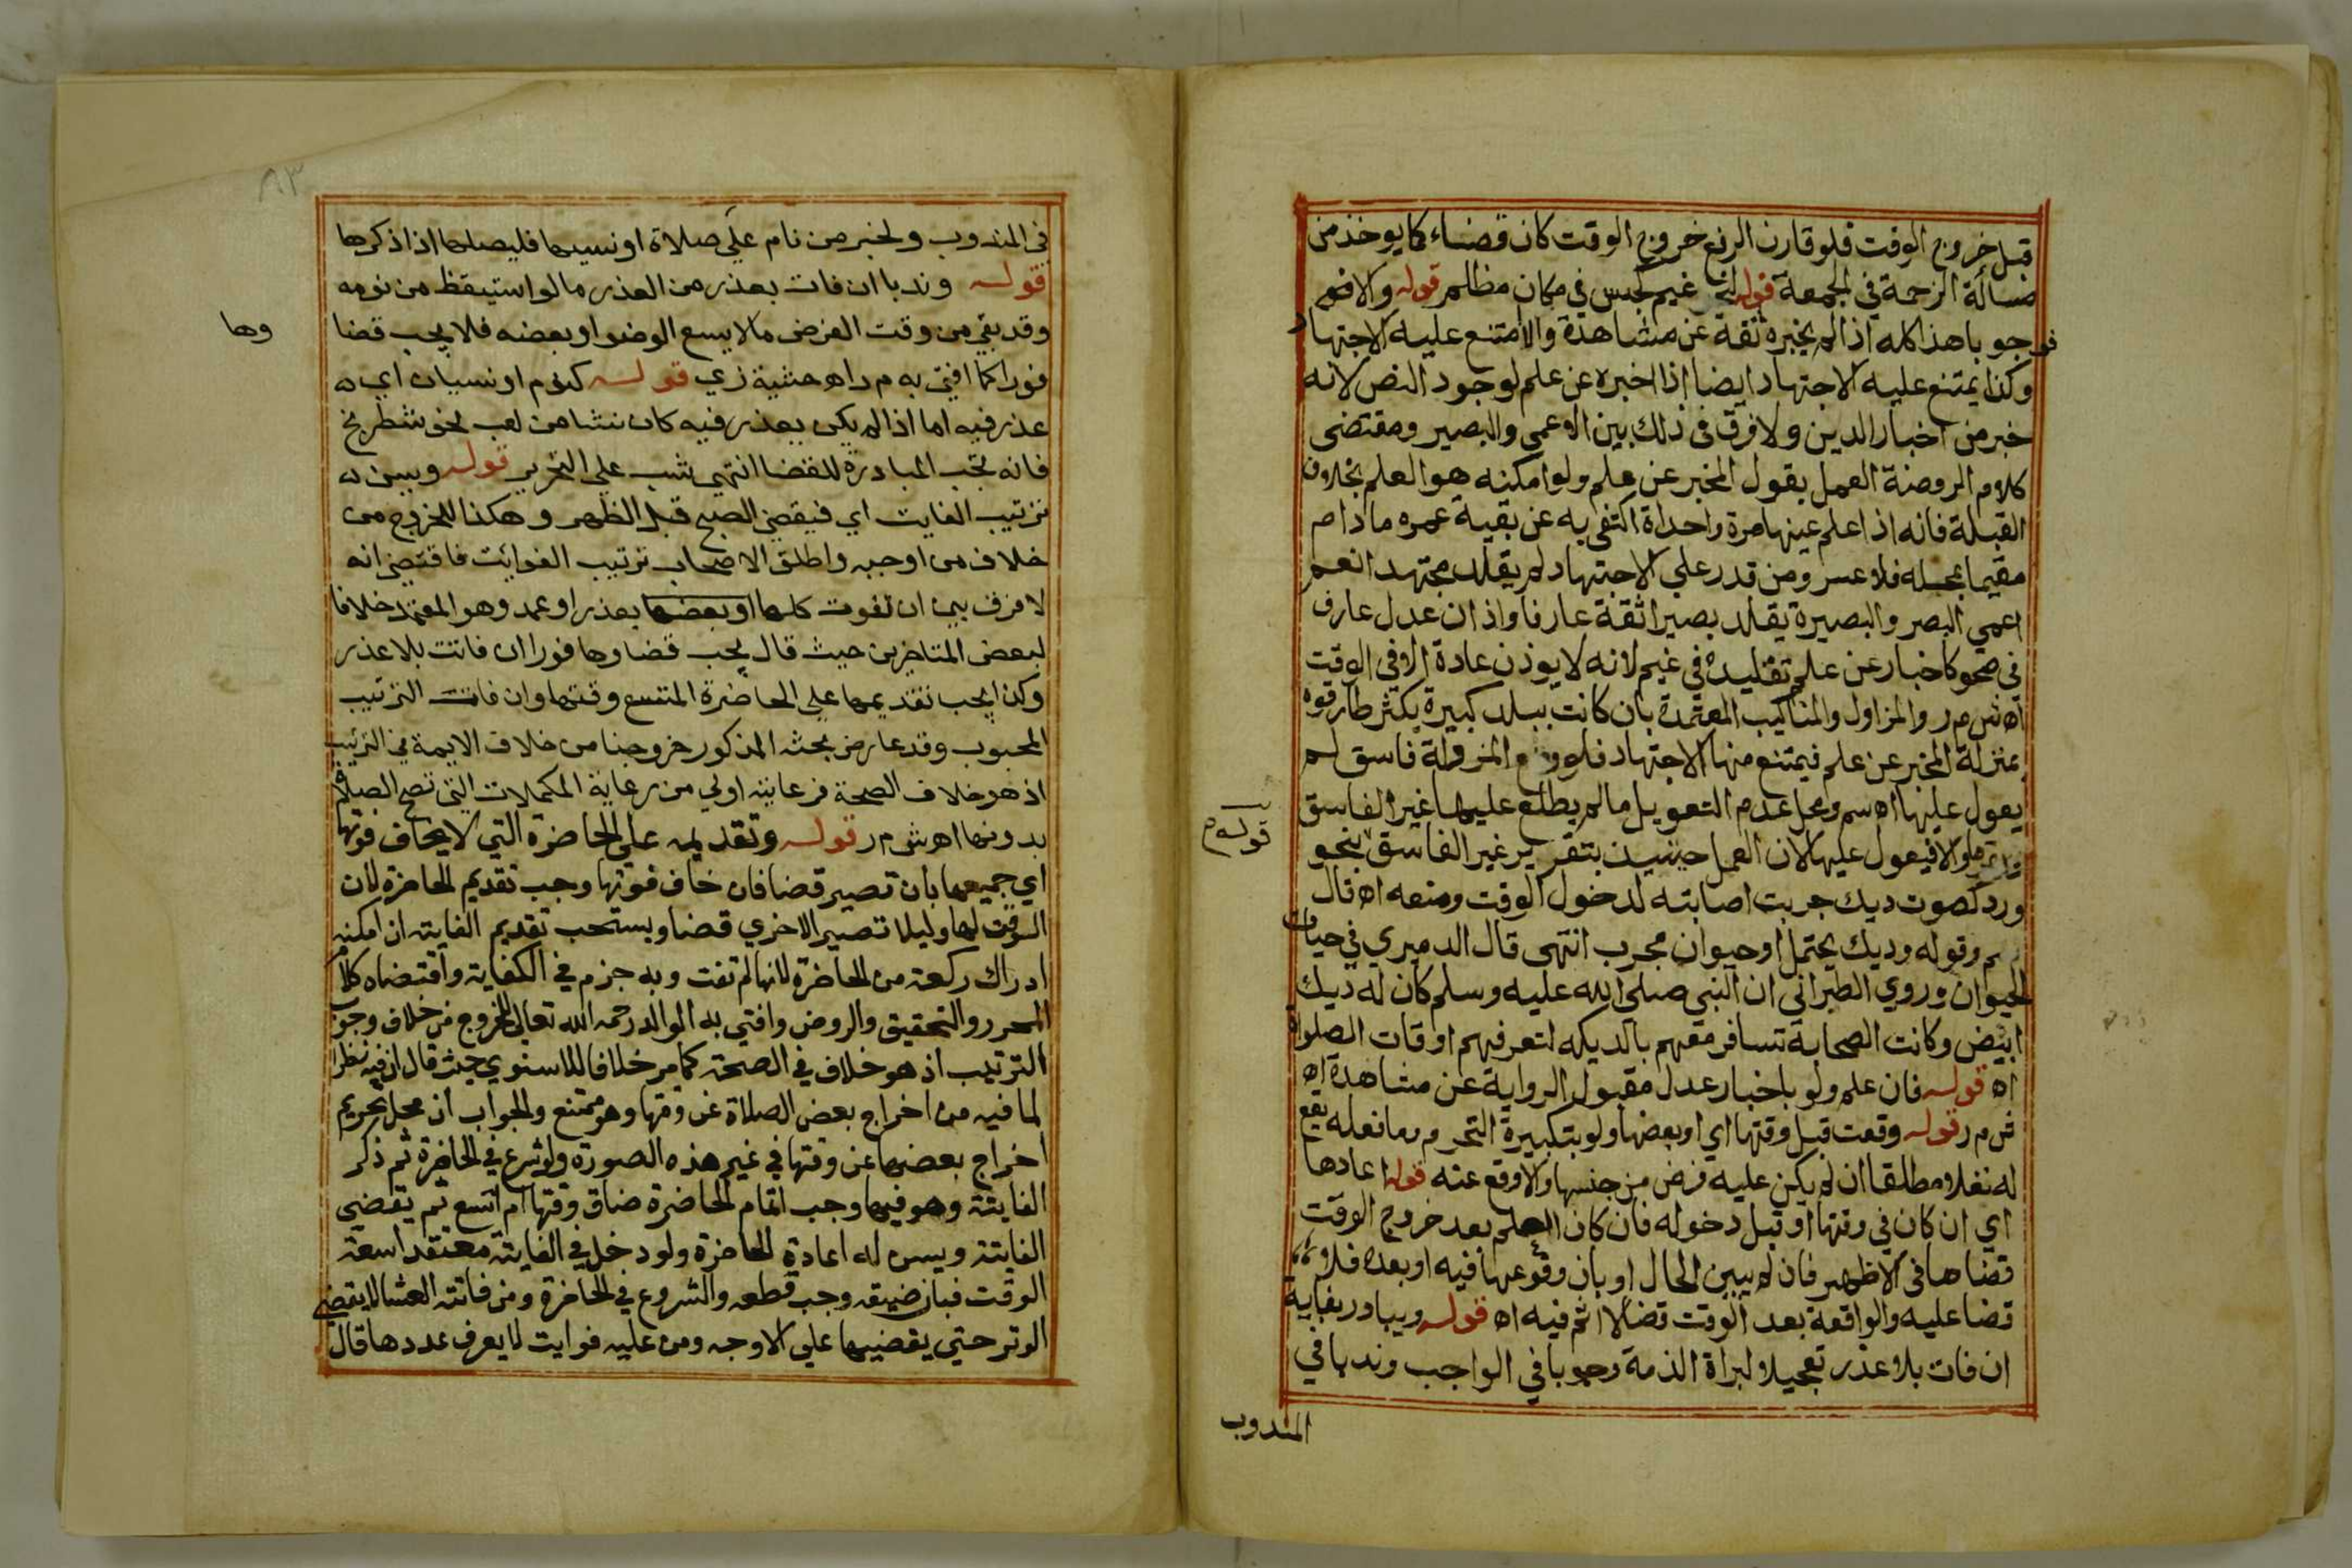 قبل خروج الوقت فلو قارن الرفع خروج الوقت كان قضاء كما يوخذ من
مسألة الزحمة في الجمعة قوله لنحو غيم كحبس في مكان مظلم قوله والا فهم
فوجوبا هذا كله اذا لم يخبره ثقة عن مشاهدة والا امتنع عليه الاجتهاد
وكذا يمتنع عليه الاجتهاد ايضا اذا اخبره عن علم لوجود النص لانه
خبر من اخبار الدين ولا فرق في ذلك بين الاعمى والبصير ومقتضى
كلام الروضة العمل بقول المخبر عن علم ولو امكنه هو العلم بخلاف
القبلة فانه اذا علم عينها مرة واحداة اكتفى به عن بقية عمره ما دام
مقيما بمحله فلا عسر ومن قدر على الاجتهاد لم يقلد مجتهدا نعم
اعمي البصر والبصيرة يقلد بصيرا ثقة عارفا واذان عدل عارف
في صحو كاخبار عن علم تقليده في غيم لانه لا يوذن عادة الا في الوقت
اه ش م ر والمزاول والمناكيب المعتمدة بان كانت ببلد كبيرة يكثر طارقوه
بمنزلة المخبر عن علم فيمتنع منها الاجتهاد فلو وضع المزولة فاسق لم
يعول عليها اه سم ومحل عدم التعويل ما لم يطلع عليها غير الفاسق
والا فيعول عليها لان العمل حينيذ بتقرير غير الفاسق بنحو
قوله م
ورد كصوت ديك جربت اصابته لدخول الوقت ومنعه اه قال
م وقوله وديك يحتمل او حيوان مجرب انتهى قال الدميري في حياة
الحيوان وروي الطبراني ان النبي صلى الله عليه وسلم كان له ديك
ابيض وكانت الصحابة تسافر معهم بالديكه لتعرفهم اوقات الصلواة
اه قوله فان علم ولو باخبار عدل مقبول الرواية عن مشاهدة اه
ش م ر قوله وقعت قبل وقتها اي او بعضها ولو بتكبيرة التحرم وما فعله يقع
له نفلا مطلقا ان لم يكن عليه فرض من جنسها والا وقع عنه قوله اعادها
اي ان كان في وقتها او قبل دخوله فان كان العلم بعد خروج الوقت
قضاها في الاظهر فان لم يبين الحال او بان وقوعها فيه او بعده فلا
قضا عليه والواقعة بعد الوقت قضا لا اثم فيه اه قوله ويبادر بفايه
ان فات بلا عذر تعجيلا لبراة الذمة وجوبا في الواجب وندبا في
المندوب
٨٣
في المندوب ولخبر من نام على صلاة او نسيها فليصلها اذا ذكرها
قوله وندبا ان فات بعذر من العذر ما لو استيقظ من نومه
وقد بقي من وقت الفرض ما لا يسع الوضو او بعضه فلا يجب قضا
وها
فورا كما افتى به م ر اه حشية زي قوله كنوم او نسيان اي ه
عذر فيه اما اذا لم يكن بعذر فيه كان نشا من لعب نحو شطرنج
فانه تجب المبادرة للقضا انتهى شب على التحرير قوله ويسن ه
ترتيب الفايت اي فيقضي الصبح قبل الظهر وهكذا للخروج من
خلاف من اوجبه واطلق الاصحاب ترتيب الفوائت فاقتضى انه
لا فرق بين ان تفوت كلها او بعضها بعذر او عمد وهو المعتمد خلافا
لبعض المتاخرين حيث قال يجب قضاوها فورا ان فاتت بلا عذر
وكذا يجب تقديمها على الحاضرة المتسع وقتها وان فاتت الترتيب
المحبوب وقد عارض بحثه المذكور خروجنا من خلاف الايمة في الترتيب
اذ هو خلاف الصحة فرعايته اولي من رعاية المكملات التي تصح الصلاة
بدونها اه ش م ر قوله وتقديمه على الحاضرة التي لا يخاف فوتها
اي جميعها بان تصير قضا فان خاف فوتها وجب تقديم الحاضرة لان
الوقت لها وليلا تصير الاخري قضا ويستحب تقديم الفايته ان امكنه
ادراك ركعة من الحاضرة لانها لم تفت وبه جزم في الكفاية واقتضاه كلام
المحرر والتحقيق والروض وافتي به الوالد رحمه الله تعالى للخروج من خلاف وجوب
الترتيب اذ هو خلاف في الصحة كما مر خلافا للاسنوي حيث قال ان فيه نظرا
لما فيه من اخراج بعض الصلاة عن وقتها وهو ممتنع والجواب ان محل تحريم
اخراج بعضها عن وقتها في غير هذه الصورة ولو شرع في الحاضرة ثم ذكر
الفايتة وهو فيها وجب اتمام الحاضرة ضاق وقتها ام اتسع ثم يقضي
الفايتة ويسن له اعادة الحاضرة ولو دخل في الفايتة معتقدا سعة
الوقت فبان ضيقه وجب قطعه والشروع في الحاضرة ومن فاتته العشا لا يقضي
الوتر حتى يقضيها على الاوجه ومن عليه فوايت لا يعرف عددها قال